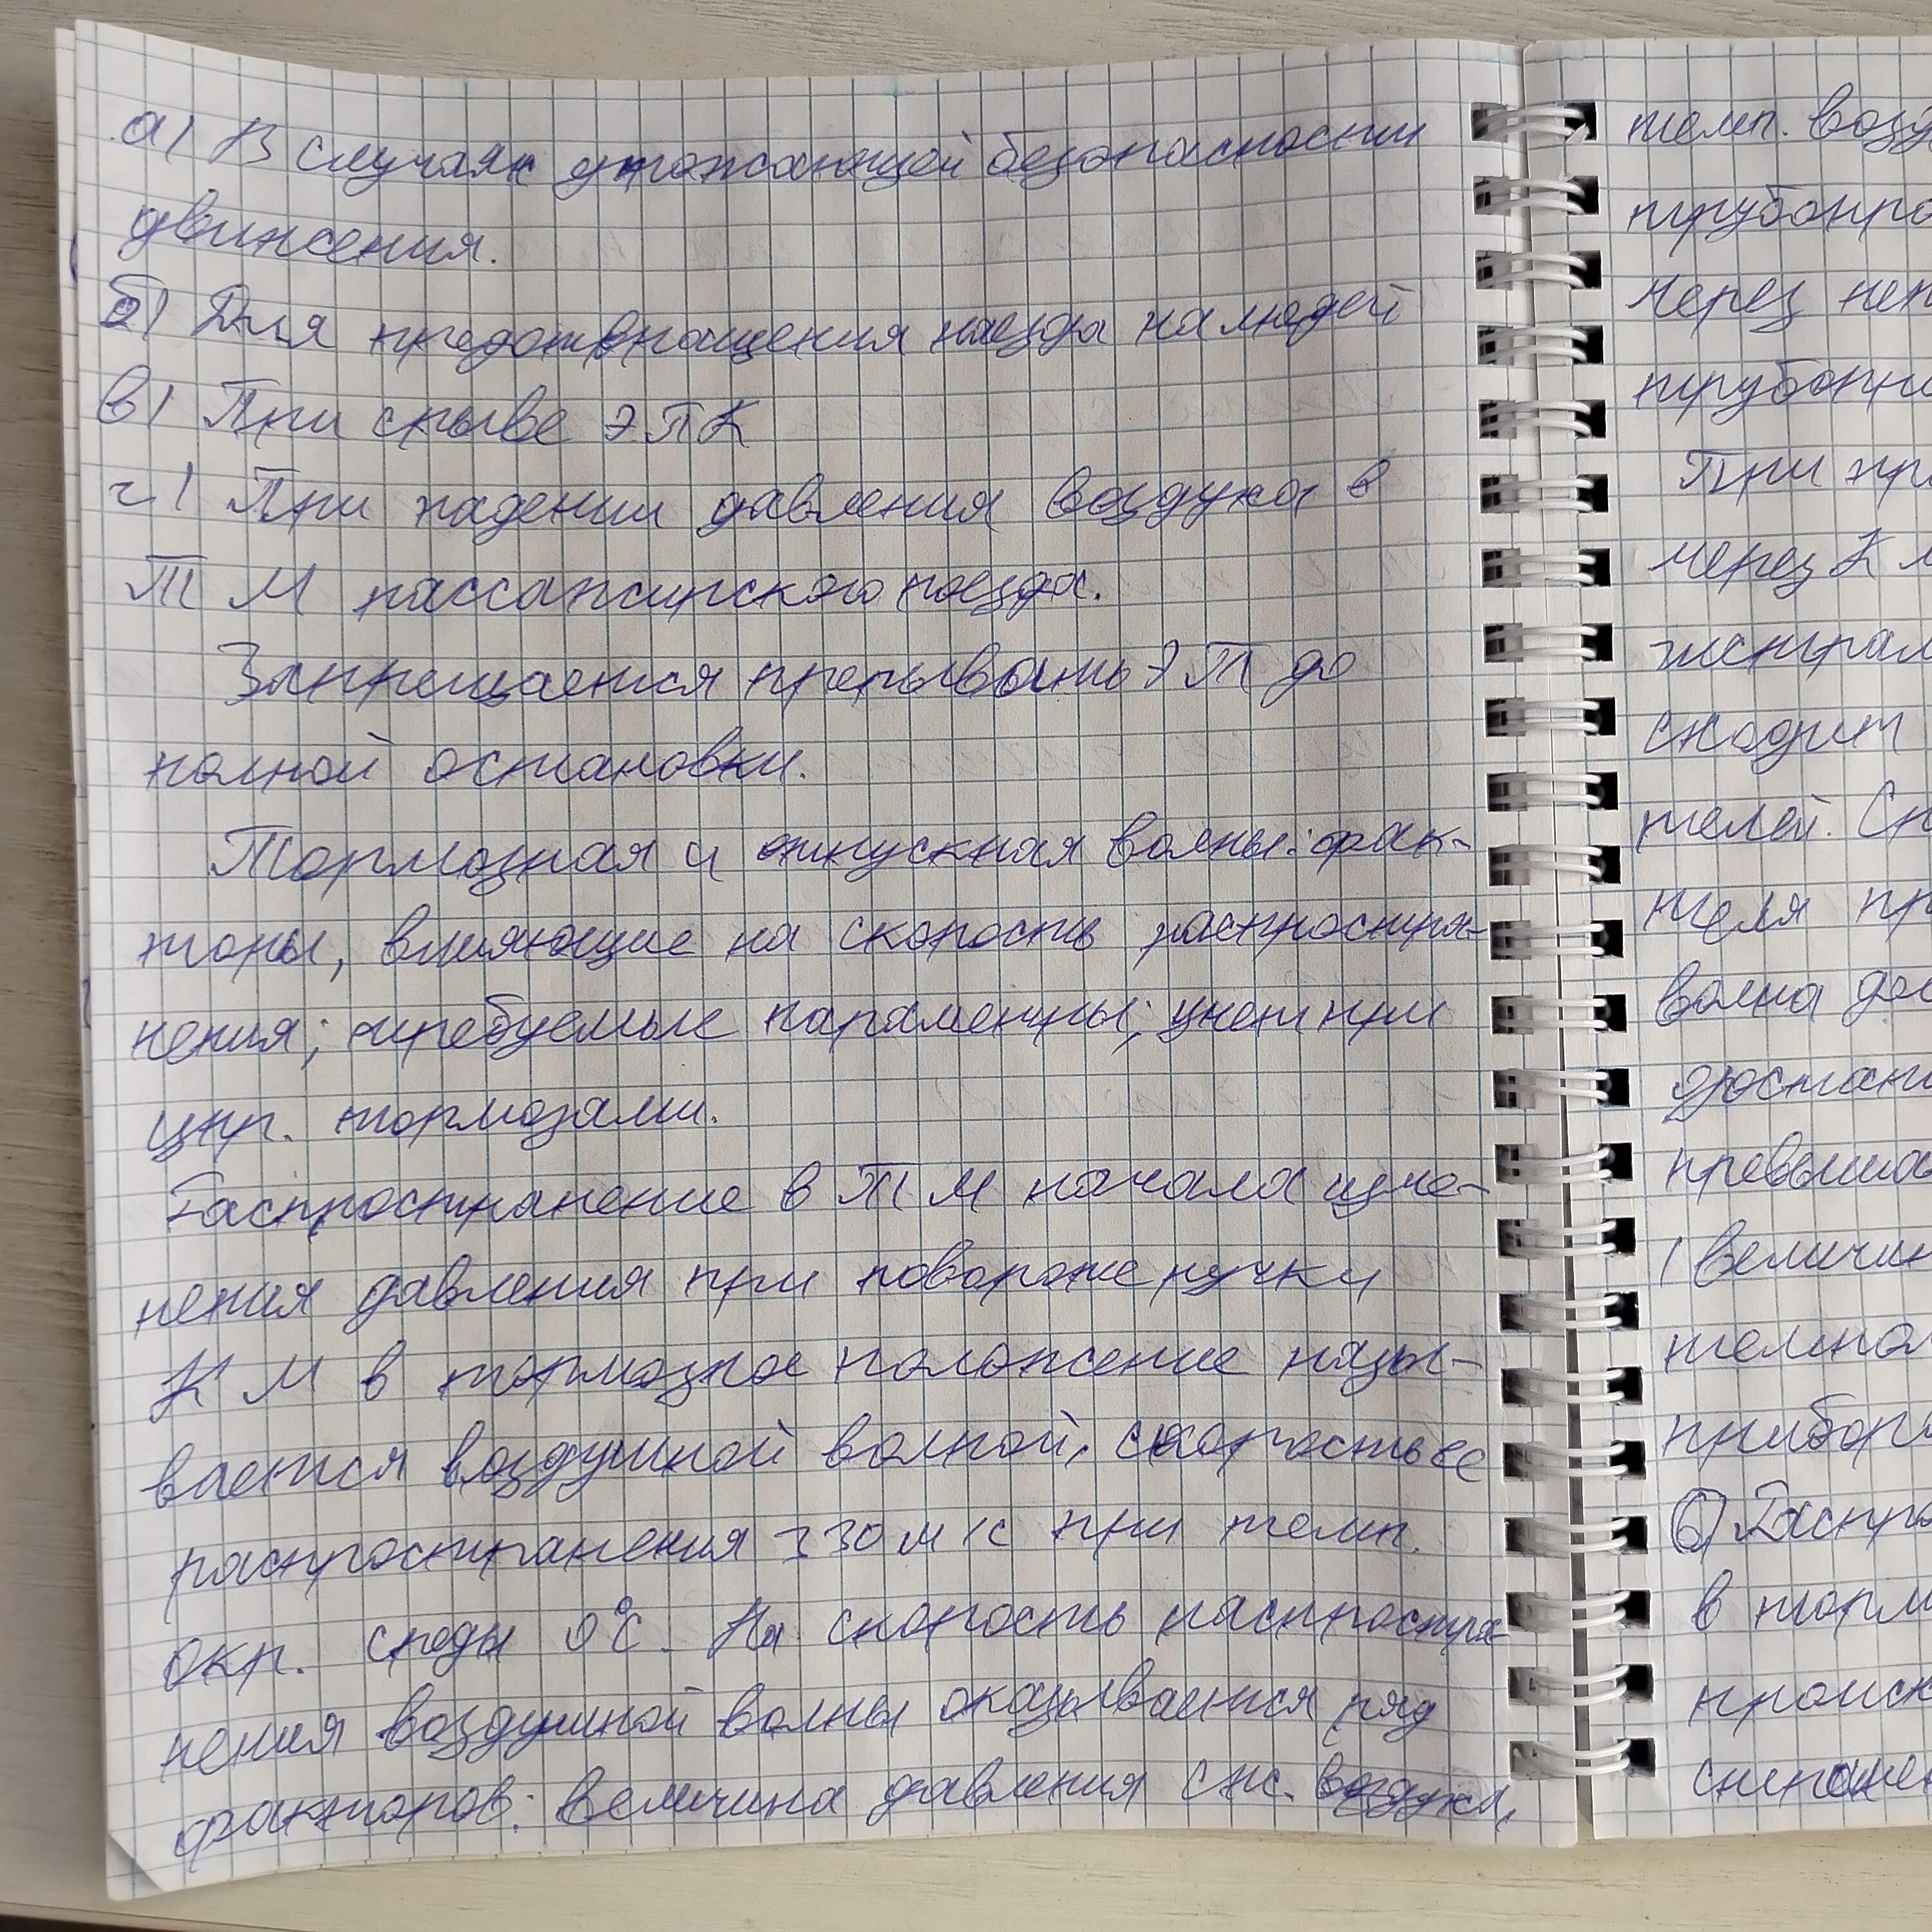 а) В случаях угрожающей безопасности
движения.
б) Для предотвращения наезда на людей
в) При срыве ЭПК
г) При падении давления воздуха в
ТМ пассажирского поезда.
Запрещается прерывать ЭТ до
полной остановки.
Тормозная и отпускная волны: фак-
торы, влияющие на скорость распростра-
нения; требуемые параметры; учет при
упр. тормозами.
Распространение в ТМ начала изме-
нения давления при повороте ручки
КМ в тормозное положение назы-
вается воздушной волной, скорость ее
распространения 330 м/с при темп.
окр. среды 0°С. На скорость распростра-
нения воздушной волны оказывается ряд
факторов: величина давления сж. воздуха,
темп. возд
трубопро
через неп
трубопро
При пр
через КМ
сходит
телей. Ск
теля пр
волна до
достат
превыша
(величин
темпо
прибор
б) Распро
в торм
происх